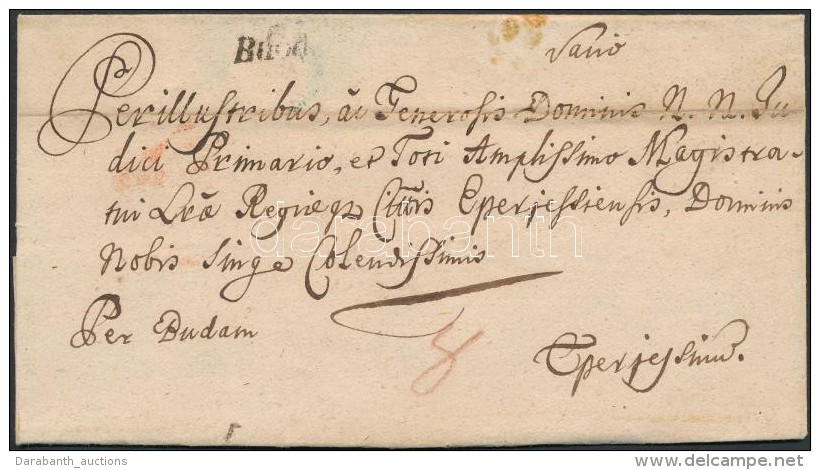 Perillustribus, ac Generosis Dominis N. N. Ju
dici Primario, et Toti Amplissimo Magistra-
tui Lrae Regiaeq Cttis Eperjessiensis, Dominis
Nobis Singe Colendissimis
Per Budam
8
Eperjessinu.
darabanth
Darabanth_auctions
delcampe.net